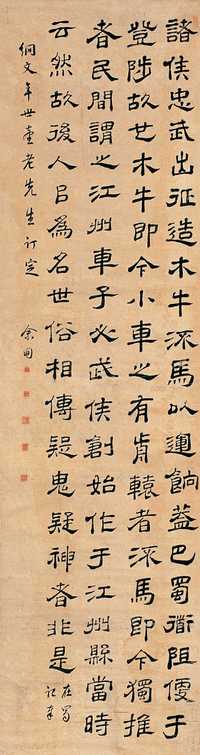 諸侯忠武出征造木牛流馬以運餉蓋巴蜀衜阻便于
登陟故也木牛即今小車之有歬轅者流馬即今獨推
者民間謂之江州車子必武侯創始作于江州縣當時
云然故後人㠯爲名世俗相傳疑鬼疑神者非是
在蜀
絅文年世臺老先生訂定
余甸